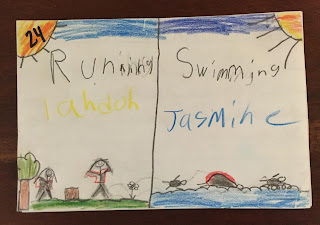 24
Running
landon
Swimming
Jasmine